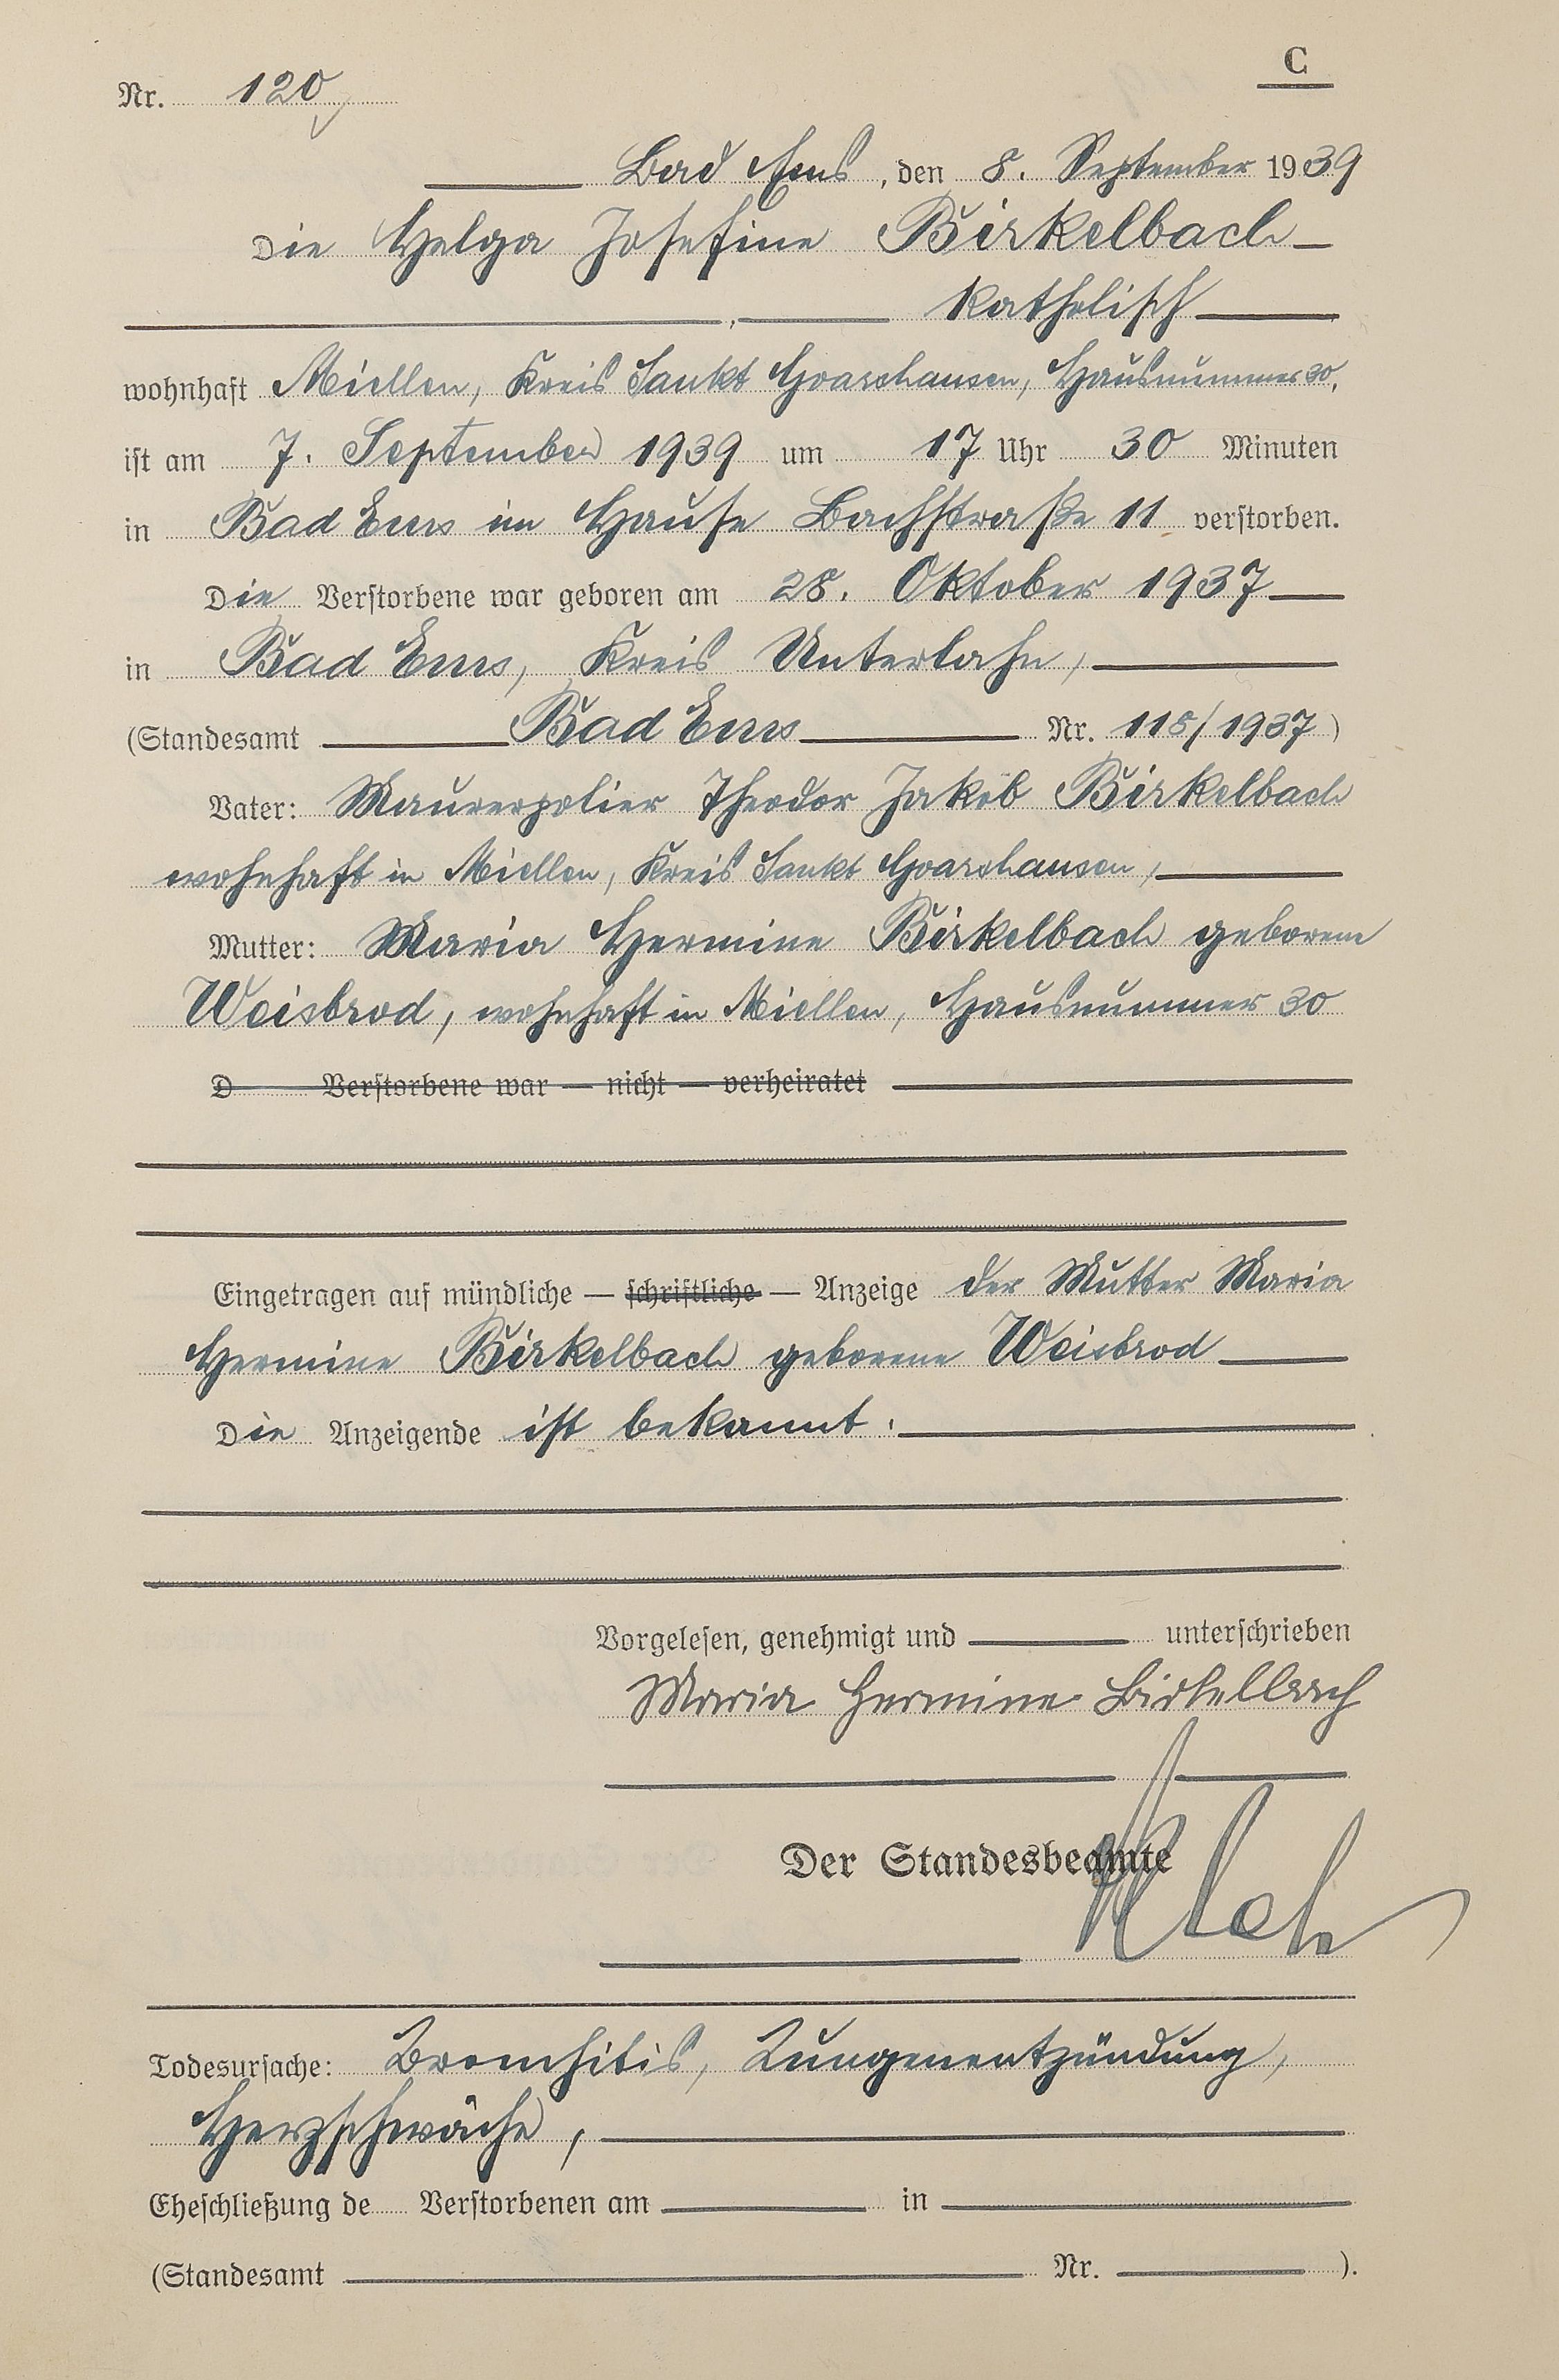 C
Nr. 120
Bad Ems, den 8. September 1939
Die Helga Josefine Birkelbach
katholisch
wohnhaft Miellen, Kreis Sankt Goarshausen, Hausnummer 30,
ist am 7. September 1939 um 17 Uhr 30 Minuten
in Bad Ems im Hause Bachstraße 11 verstorben.
Die Verstorbene war geboren am 28. Oktober 1937
in Bad Ems, Kreis Unterlahn,
(Standesamt Bad Ems Nr. 118/1937)
Vater: Maurerpolier Theodor Jakob Birkelbach
wohnhaft in Miellen, Kreis Sankt Goarshausen,
Mutter: Maria Hermine Birkelbach geborene
Weisbrod, wohnhaft in Miellen, Hausnummer 30
D Verstorbene war — nicht — verheiratet
Eingetragen auf mündliche — schriftliche — Anzeige der Mutter Maria
Hermine Birkelbach geborene Weisbrod
Die Anzeigende ist bekannt.
Vorgelesen, genehmigt und unterschrieben
Maria Hermine Birkelbach
Der Standesbeamte
Todesursache: Bronchitis, Lungenentzündung,
Herzschwäche,
Eheschließung de Verstorbenen am in
(Standesamt Nr. ).